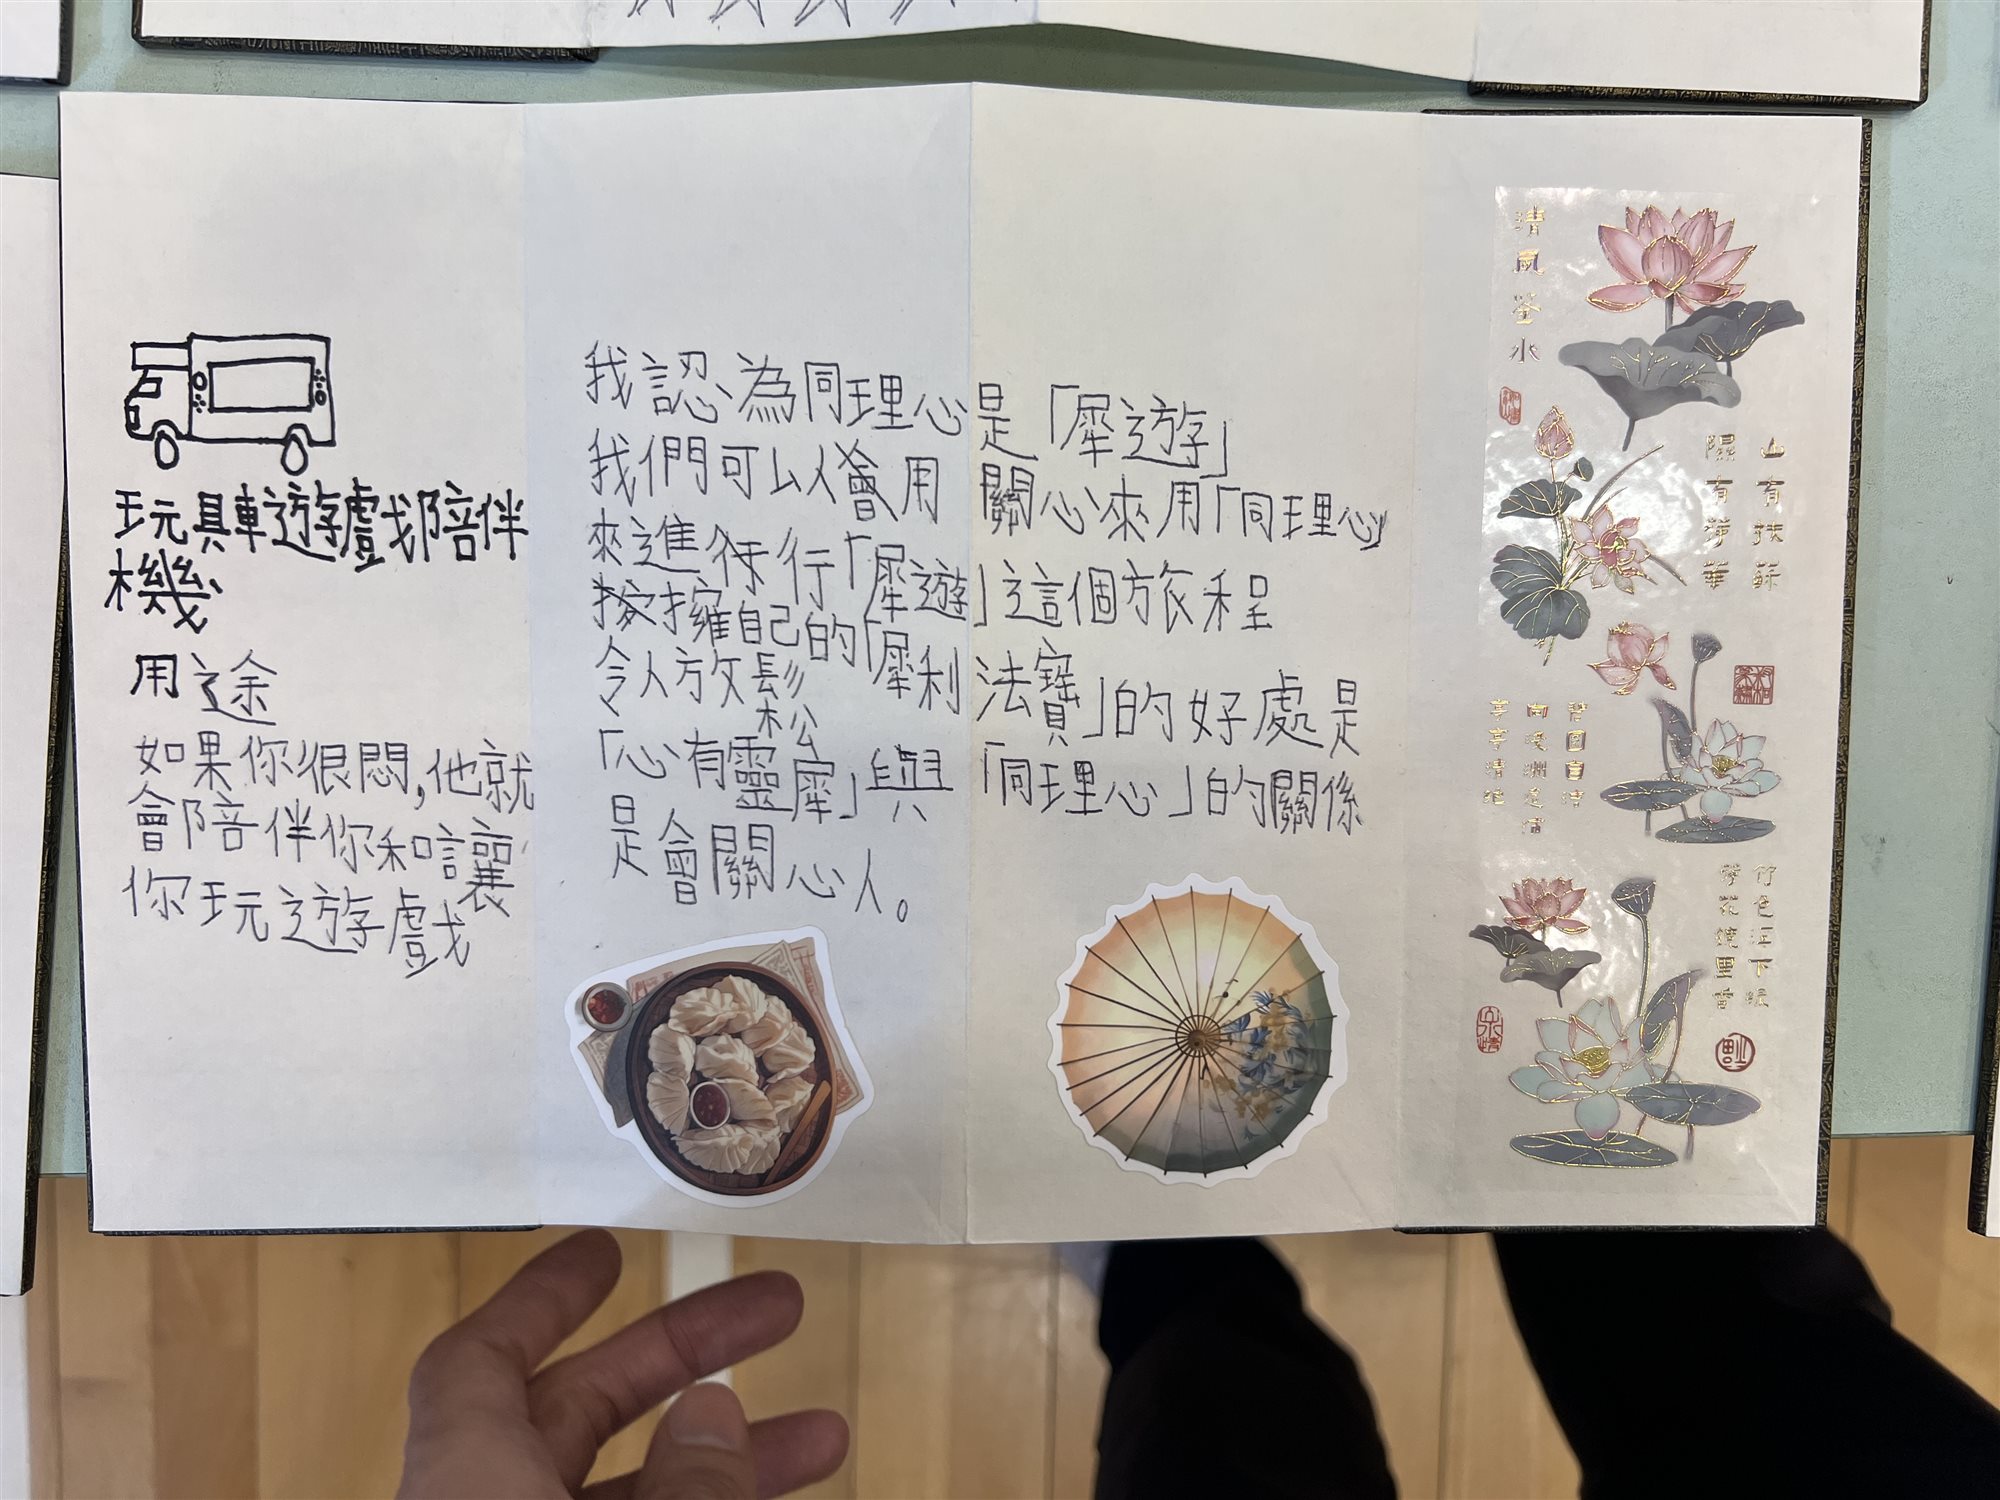 玩具車遊戲陪伴
機
用途
如果你很悶,他就
會陪伴你和讓
你玩遊戲
我認為同理心是「犀遊」
我們可以會用關心來用「同理心」
來進行「犀遊」這個旅程
擁自己的「犀利法寶」的好處是
令人放鬆
「心有靈犀」與「同理心」的關係
是會關心人。
清風
水
山有扶蘇
隰有荷華
向暖洲邊情
亭亭清絕
竹色江下
荷花鏡裡香